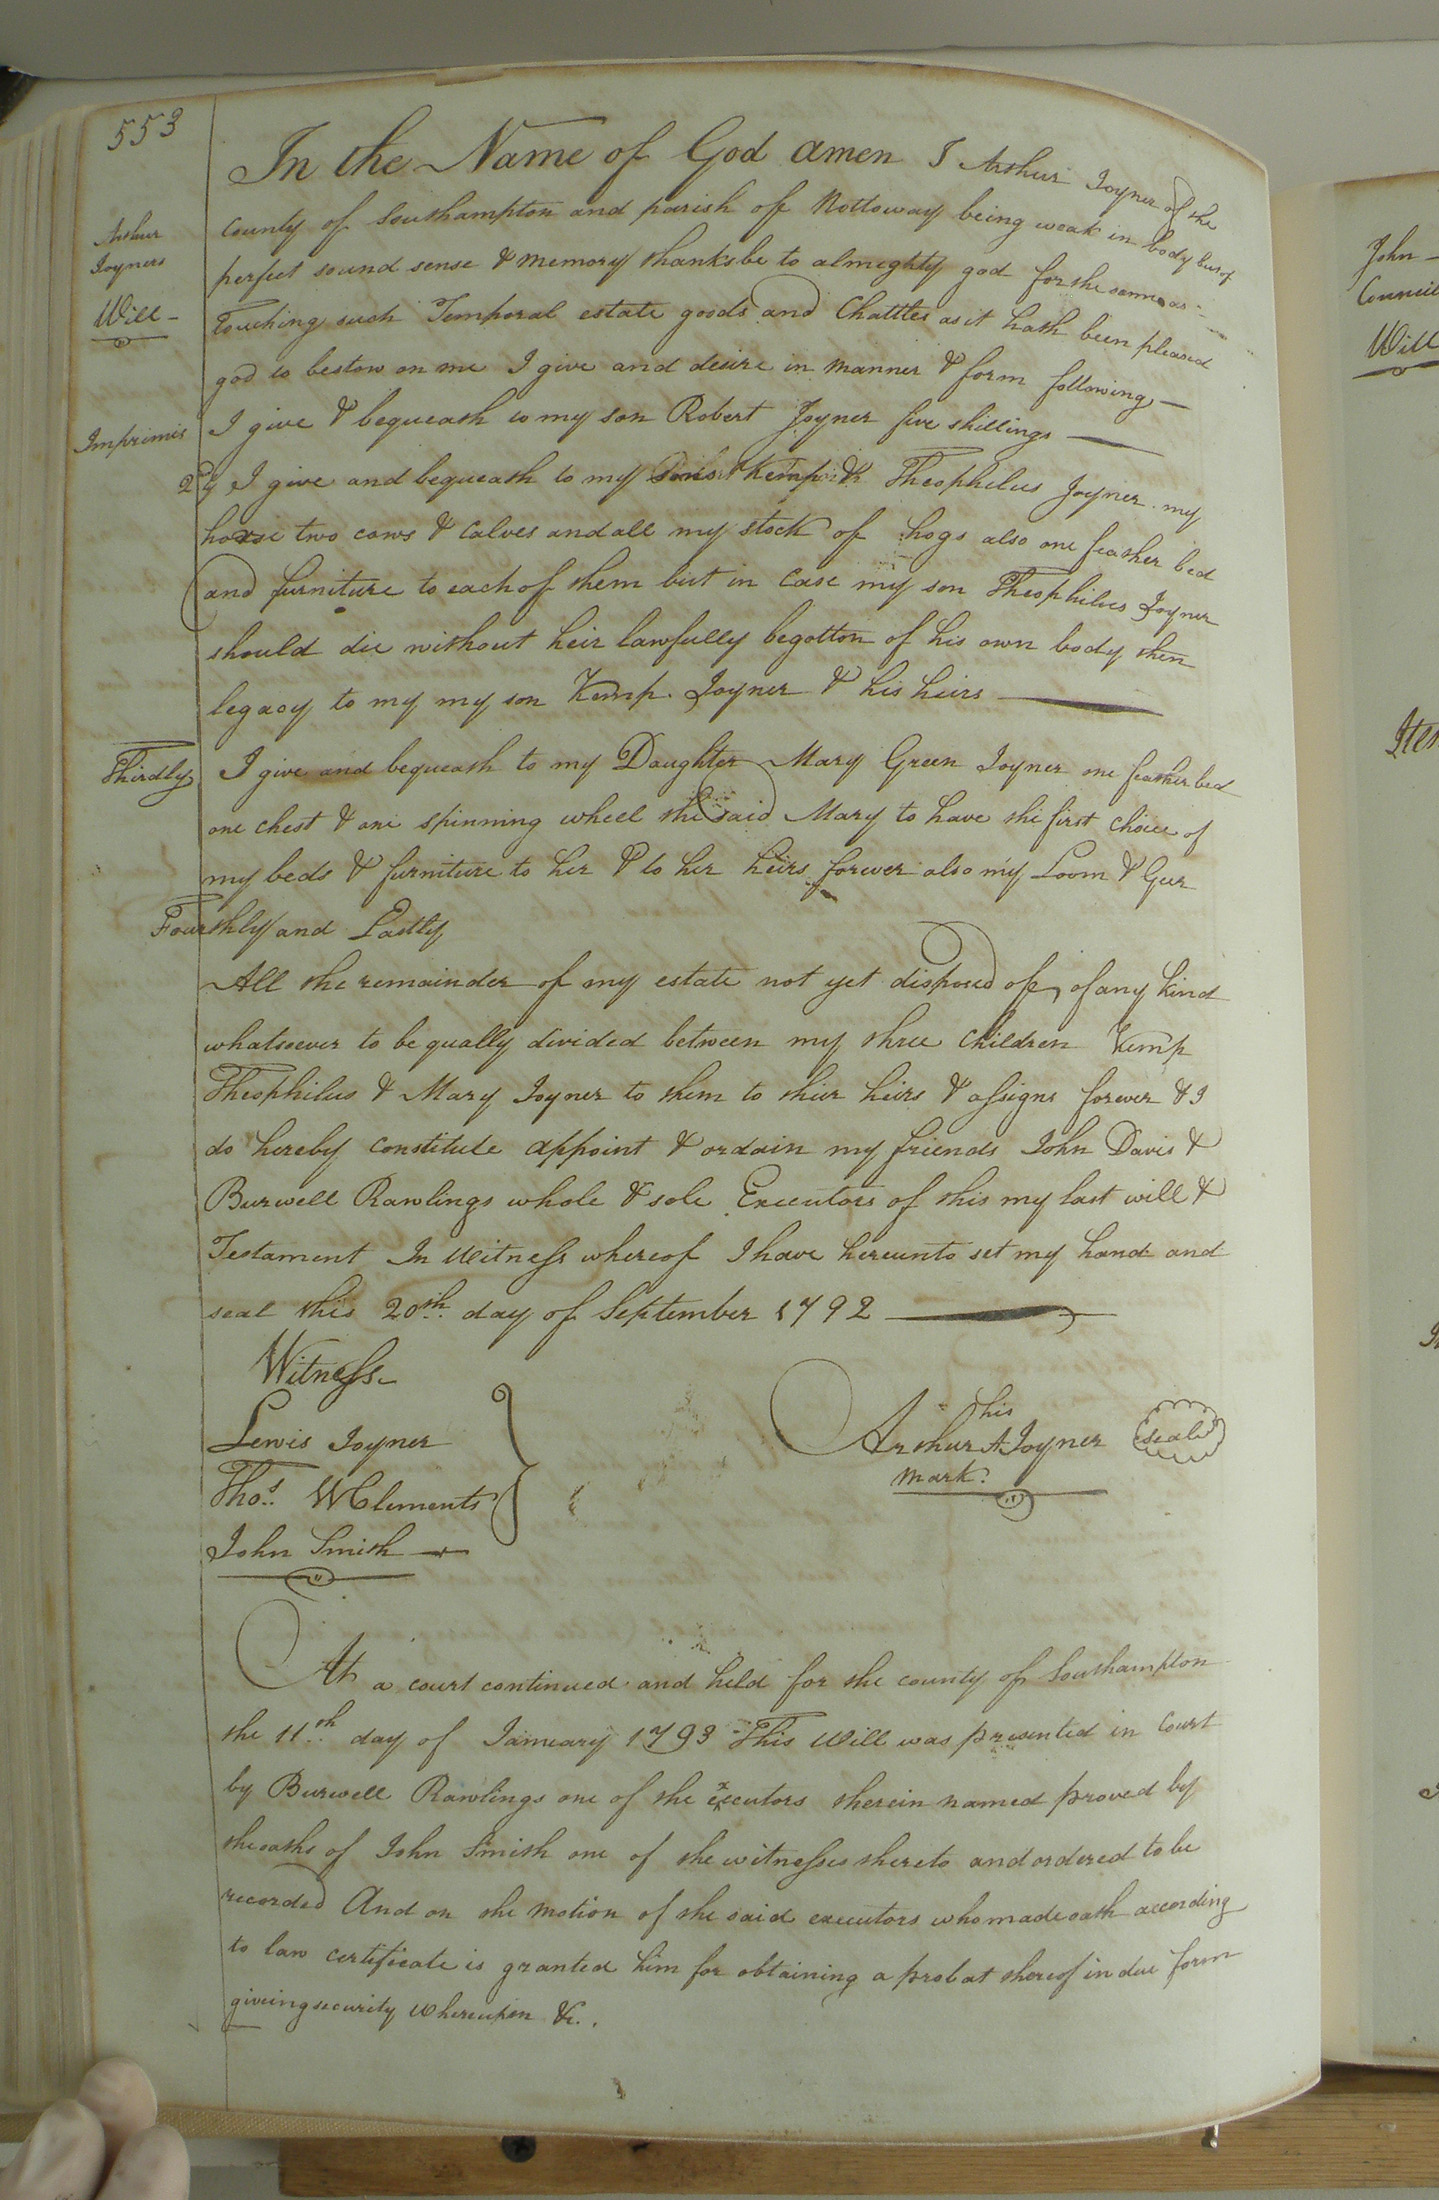 553
In the Name of God amen I Arthur Joyner of the
Arthur
Joyners
Will
county of Southampton and parish of Nottoway being weak in body but of
perfect sound sense & memory thanks be to almighty god for the same as
Touching such Temporal estate goods and Chattles as it hath been pleased
god to bestow on me I give and desire in manner & form following
Imprimis I give & bequeath to my son Robert Joyner five shillings
2dly I give and bequeath to my Sons Kemp & Theophilus Joyner my
horse two cows & calves and all my stock of hogs also one feather bed
and furniture to each of them but in Case my son Theophilus Joyner
should die without heir lawfully begotton of his own body then
legacy to my my son Kemp Joyner & his heirs
Thirdly I give and bequeath to my Daughter Mary Green Joyner one feather bed
one chest & one spinning wheel the said Mary to have the first choice of
my beds & furniture to her & to her heirs forever also my Loom & Geer
Fourthly and Lastly
All the remainder of my estate not yet disposed of, of any kind
whatsoever to be qually divided between my three children Kemp
Theophilus & Mary Joyner to them to their heirs & assigns forever & I
do hereby constitute appoint & ordain my friends John Davis &
Burwell Rawlings whole & sole Executors of this my last will &
Testament In Witness whereof I have hereunto set my hand and
seal this 20th day of September 1792
Witness
Lewis Joyner
Thos. W Clements
John Smith
his
Arthur A Joyner seal
mark
At a court continued and held for the county of Southampton
the 11th day of January 1793 This Will was presented in Court
by Burwell Rawlings one of the executors therein named proved by
the oaths of John Smith one of the witnesses thereto and ordered to be
recorded And on the motion of the said executors who made oath according
to law certificate is granted him for obtaining a probat thereof in due form
giveing security whereupon &c.
John
Council
Will